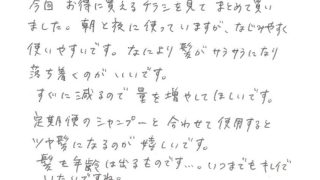 今回 お得に買えるチラシを見て まとめて買い
ました。朝と夜に使っていますが、なじみやすく
使いやすいです。なにより髪がサラサラになり
落ち着くのがいいです。
すぐに減るので量を増やしてほしいです。
定期便のシャンプーと合わせて使用すると
ツヤ髪になるのが嬉しいです。
髪も年齢は出るものです…。いつまでもキレイで
いたいですね。